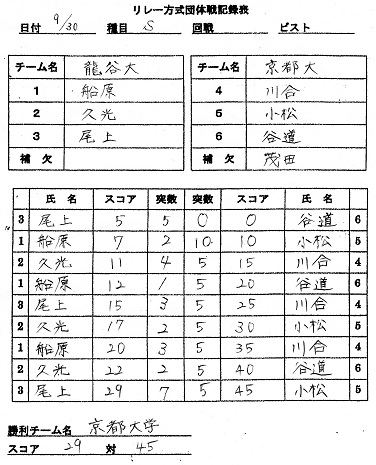 リレー方式団体戦記録表
日付 9/30 種目 S 回戦 ピスト
チーム名 龍谷大 チーム名 京都大
1 船原 4 川合
2 久光 5 小松
3 尾上 6 谷道
補欠 補欠 茂田
氏名 スコア 突数 突数 スコア 氏名
3 尾上 5 5 0 0 谷道 6
1 船原 7 2 10 10 小松 5
2 久光 11 4 5 15 川合 4
1 船原 12 1 5 20 谷道 6
3 尾上 15 3 5 25 川合 4
2 久光 17 2 5 30 小松 5
1 船原 20 3 5 35 川合 4
2 久光 22 2 5 40 谷道 6
3 尾上 29 7 5 45 小松 5
勝利チーム名 京都大学
スコア 29 対 45